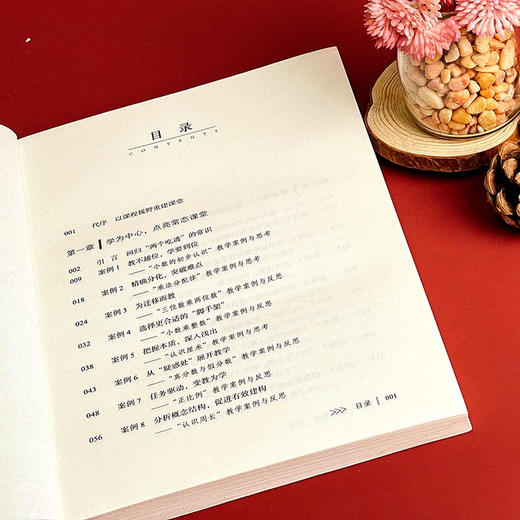 目 录
CONTENTS
001 代序 以课程视野重建课堂
第一章 学为中心，点亮常态课堂
002 引 言 回归“两个吃透”的常识
009 案例 1 教不越位，学要到位
——“小数的初步认识”教学案例与思考
018 案例 2 精确分化，突破难点
——“乘法分配律”教学案例与反思
024 案例 3 为迁移而教
——“三位数乘两位数”教学案例与反思
032 案例 4 选择更合适的“脚手架”
——“小数乘整数”教学案例与反思
038 案例 5 把握本质，深入浅出
——“认识厘米”教学案例与思考
043 案例 6 从“疑惑处”展开教学
——“真分数与假分数”教学案例与反思
048 案例 7 任务驱动，变教为学
——“正比例”教学案例与反思
056 案例 8 分析概念结构，促进有效建构
——“认识周长”教学案例与反思
目录 001